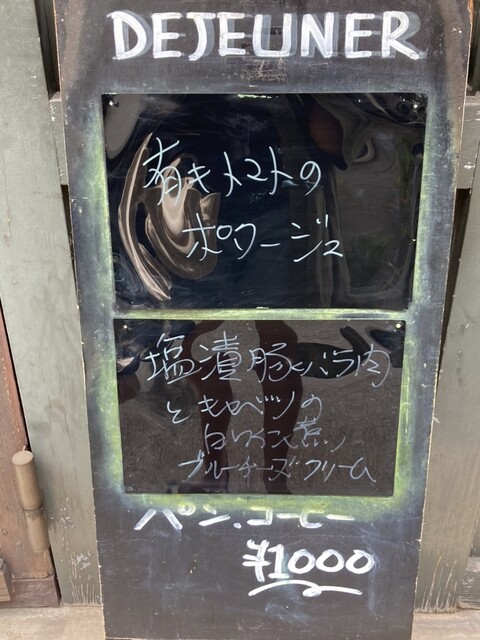 DEJEUNER
有キトマトの
ポタージュ
塩漬豚バラ肉
とキャベツの
白ワイン煮
ブルーチーズクリーム
パン、コーヒー
¥1000